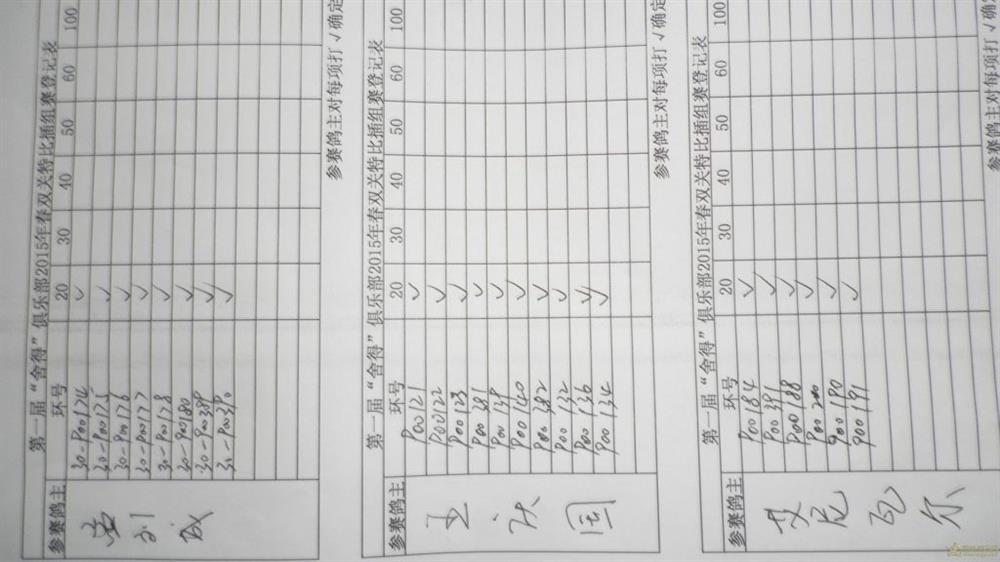 第一届“舍得”俱乐部2015年春双关特比插组赛登记表
参赛鸽主 环号 20 30 40 50 60 100
30-P00174 √
30-P00175 √
30-P00176 √
30-P00177 √
30-P00178 √
30-P00180 √
30-P00389 √
30-P00390 √
参赛鸽主对每项打√确定
第一届“舍得”俱乐部2015年春双关特比插组赛登记表
参赛鸽主 环号 20 30 40 50 60 100
王 国
P00121 √
P00122 √
P00123 √
P00381 √
P00138 √
P00140 √
P00382 √
P00132 √
P00136 √
P00134 √
参赛鸽主对每项打√确定
第一届“舍得”俱乐部2015年春双关特比插组赛登记表
参赛鸽主 环号 20 30 40 50 60 100
艾尼瓦尔
P00184 √
P00391 √
P00188 √
P00200 √
P00190 √
P00191 √
参赛鸽主对每项打√确定